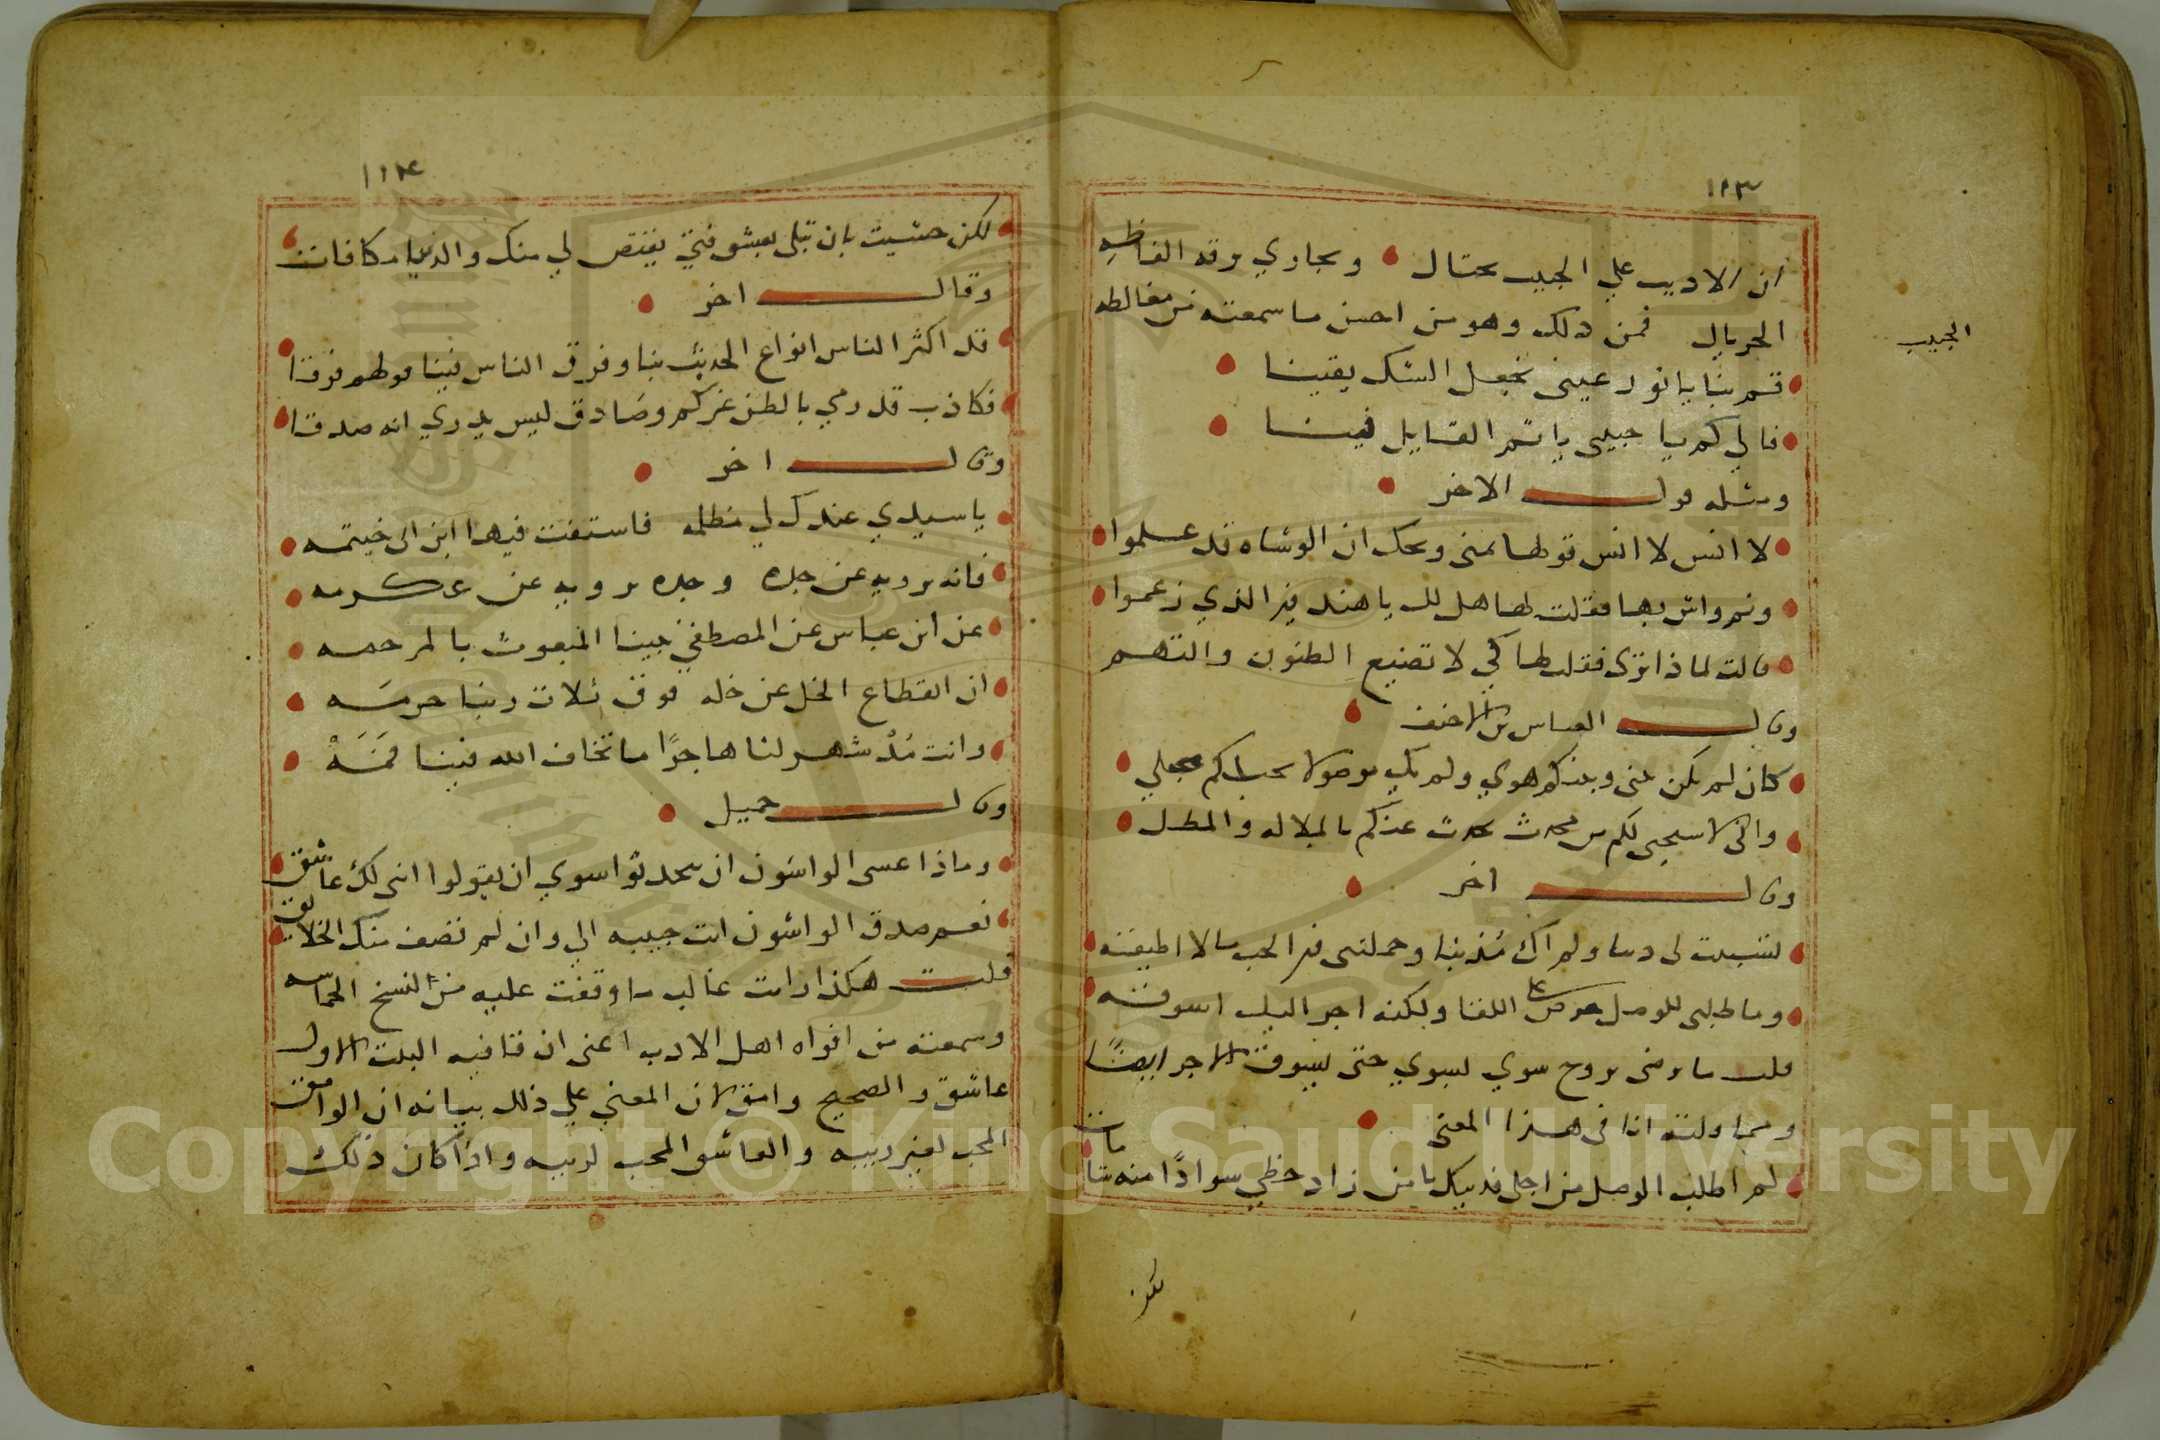 ١١٣
ان الاديب علي الحبيب يحتال ويجاري برقه الفاظه
الحريال فمن ذلك وهو من احسن ما سمعته من مغالطه
الحبيب
قم بنا يا نور عيني نجعل الشك يقينا
فالي كم يا حبيبي ياثم القايل فينا
ومثله قول الاخر
لا انس لا انس قولها بمني ويحك ان الوشاه قد علموا
ونم واش بها فقلت لها هل لك يا هند في الذي زعموا
قالت لماذا تري فقلت لها كي لا تضيع الظنون والتهم
وقال العباس بن الاحنف
كان لم يكن بيني وبينكم هوي ولم يك موصولا بحبلكم حبلي
واني لاستحيي لكم من محدث يحدث عنكم بالملاله والمطل
وقال اخر
لي ذنبا ولم اك مذنبا وحملتني في الحب ما لا اطيقه
وما طلبي للوصل حرص علي اللقا ولكنه اجر اليك اسوقه
قلت ما يرضي بروح سوي يسوي حتي يسوق الاجر ايضا
ومما قلته انا في هذا المعني
لم اطلب الوصل من اجلي فديتك يا من زاد حظي سوادا منه شامات
لكن
١١٤
لكن خشيت بان تبلي بعشق فتي يقتص لي منك والدنيا مكافات
وقال اخر
قد اكثر الناس انواع الحديث بنا وفرق الناس فينا قولهم فرقا
فكاذب قد رمي بالظن غركم وصادق ليس يدري انه صدقا
وقال اخر
يا سيدي عندك لي مظلمه فاستفت فيها ابن ابي خيثمه
فانه يرويه عن جده وجده يرويه عن عكرمه
عن ابن عباس عن المصطفي نبينا المبعوث بالمرحمه
ان انقطاع الخل عن خله فوق ثلاث ربنا حرمه
وانت مذ شهر لنا هاجرا ما تخاف الله فينا فمه
وقال جميل
وماذا عسي الواشون ان يتحدثوا سوي ان يقولوا انني لك عاشق
نعم صدق الواشون انت حبيبه الي وان لم تصف منك الخلايق
قلت هكذا رايت غالب ما وقفت عليه من نسخ الحماسه
وسمعته من افواه اهل الادب اعني ان قافيه البيت الاول
عاشق والصحيح وامق لان المعني علي ذلك بيانه ان الوامق
المحب لغير ريبه والعاشق المحب لريبه واذا كان ذلك